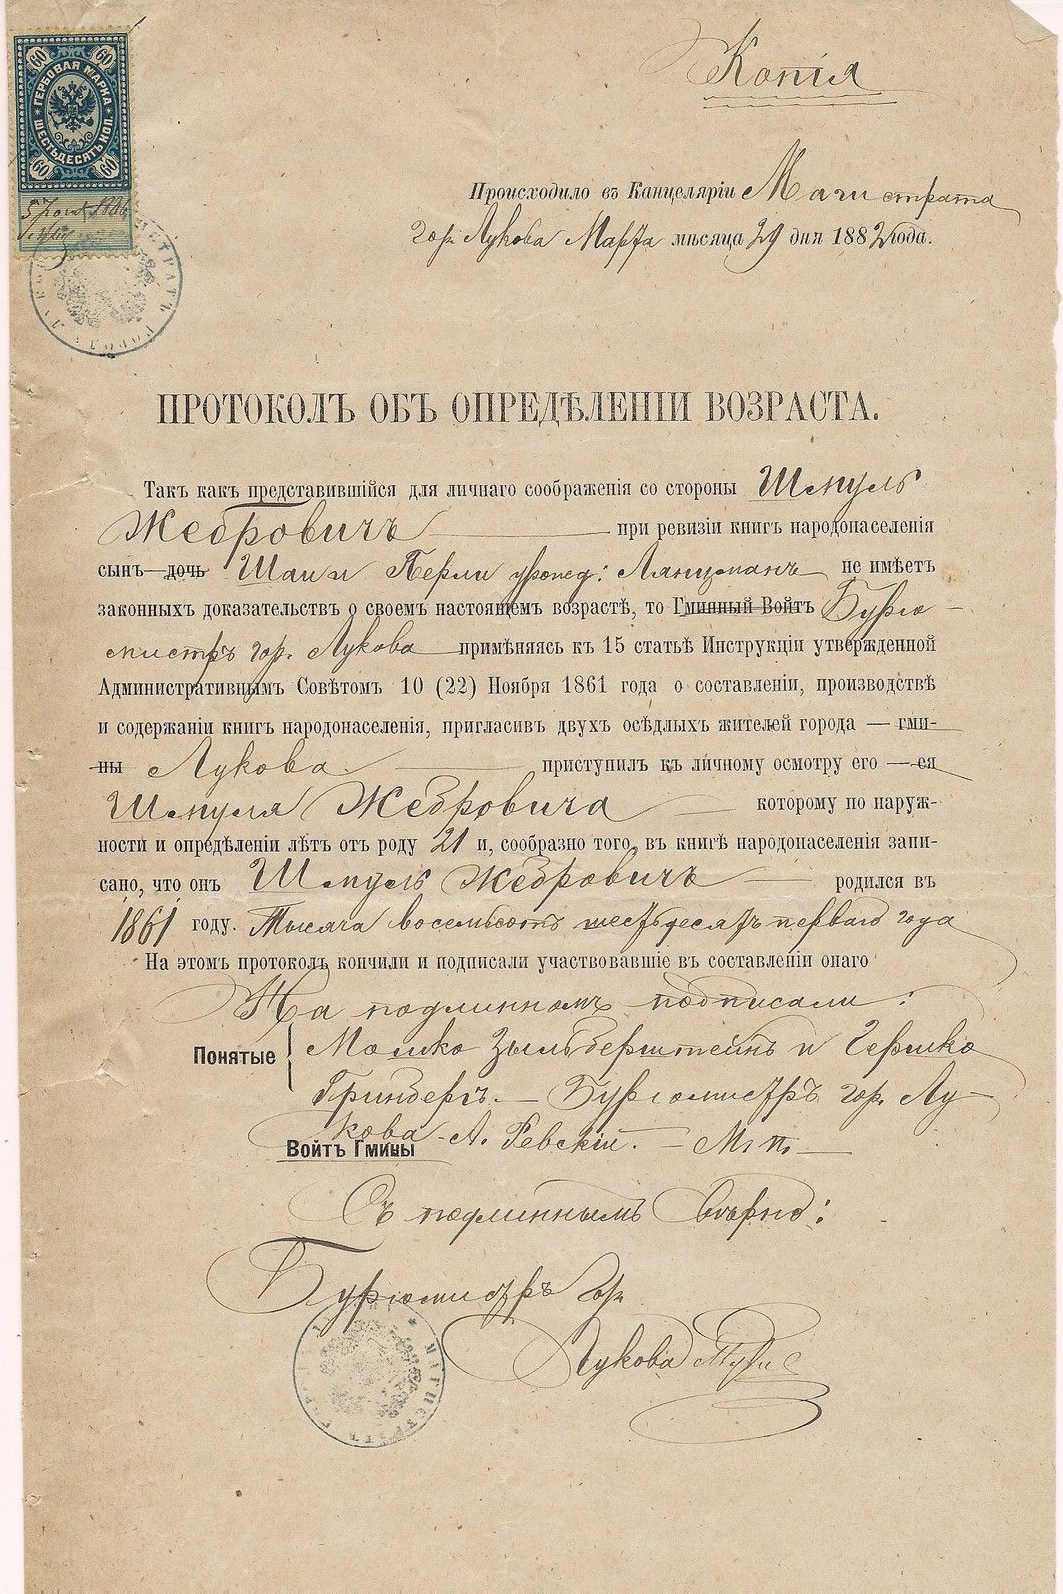 Копія
60 60
ГЕРБОВАЯ МАРКА
ШЕСТЬДЕСЯТЬ КОП.
60 60
Происходило въ Канцеляріи Магистрата
гор. Лукова Марта мѣсяца 29 дня 1882 года.
ПРОТОКОЛЪ ОБЪ ОПРЕДѢЛЕНІИ ВОЗРАСТА.
Такъ какъ представившійся для личнаго соображенія со стороны Шмуль
Жебровичъ при ревизіи книгъ народонаселенія
сынъ дочь Шаи и Перли урожд: Лянцманъ не имѣетъ
законныхъ доказательствъ о своемъ настоящемъ возрастѣ, то Гминный Войтъ Бурго-
мистръ гор. Лукова примѣняясь къ 15 статьѣ Инструкціи утвержденной
Административнымъ Совѣтомъ 10 (22) Ноября 1861 года о составленіи, производствѣ
и содержаніи книгъ народонаселенія, пригласивъ двухъ осѣдлыхъ жителей города — гми-
ны Лукова приступилъ къ личному осмотру его — ея
Шмуля Жебровича которому по наруж-
ности и опредѣленіи лѣтъ отъ роду 21 и, сообразно того, въ книгѣ народонаселенія запи-
сано, что онъ Шмуль Жебровичъ родился въ
1861 году. Тысяча восемьсотъ шестьдесятъ перваго года
На этомъ протоколъ кончили и подписали участвовавшіе въ составленіи онаго
На подлинномъ подписали:
Понятые Мошко Зыльберштейнъ и Гершко
Гринбергъ. — Бургомистръ гор. Лу-
кова А. Ревскій. — М. п. —
Войтъ Гмины
Съ подлиннымъ вѣрно:
Бургомистръ гор.
Лукова
МАГИСТРАТЪ